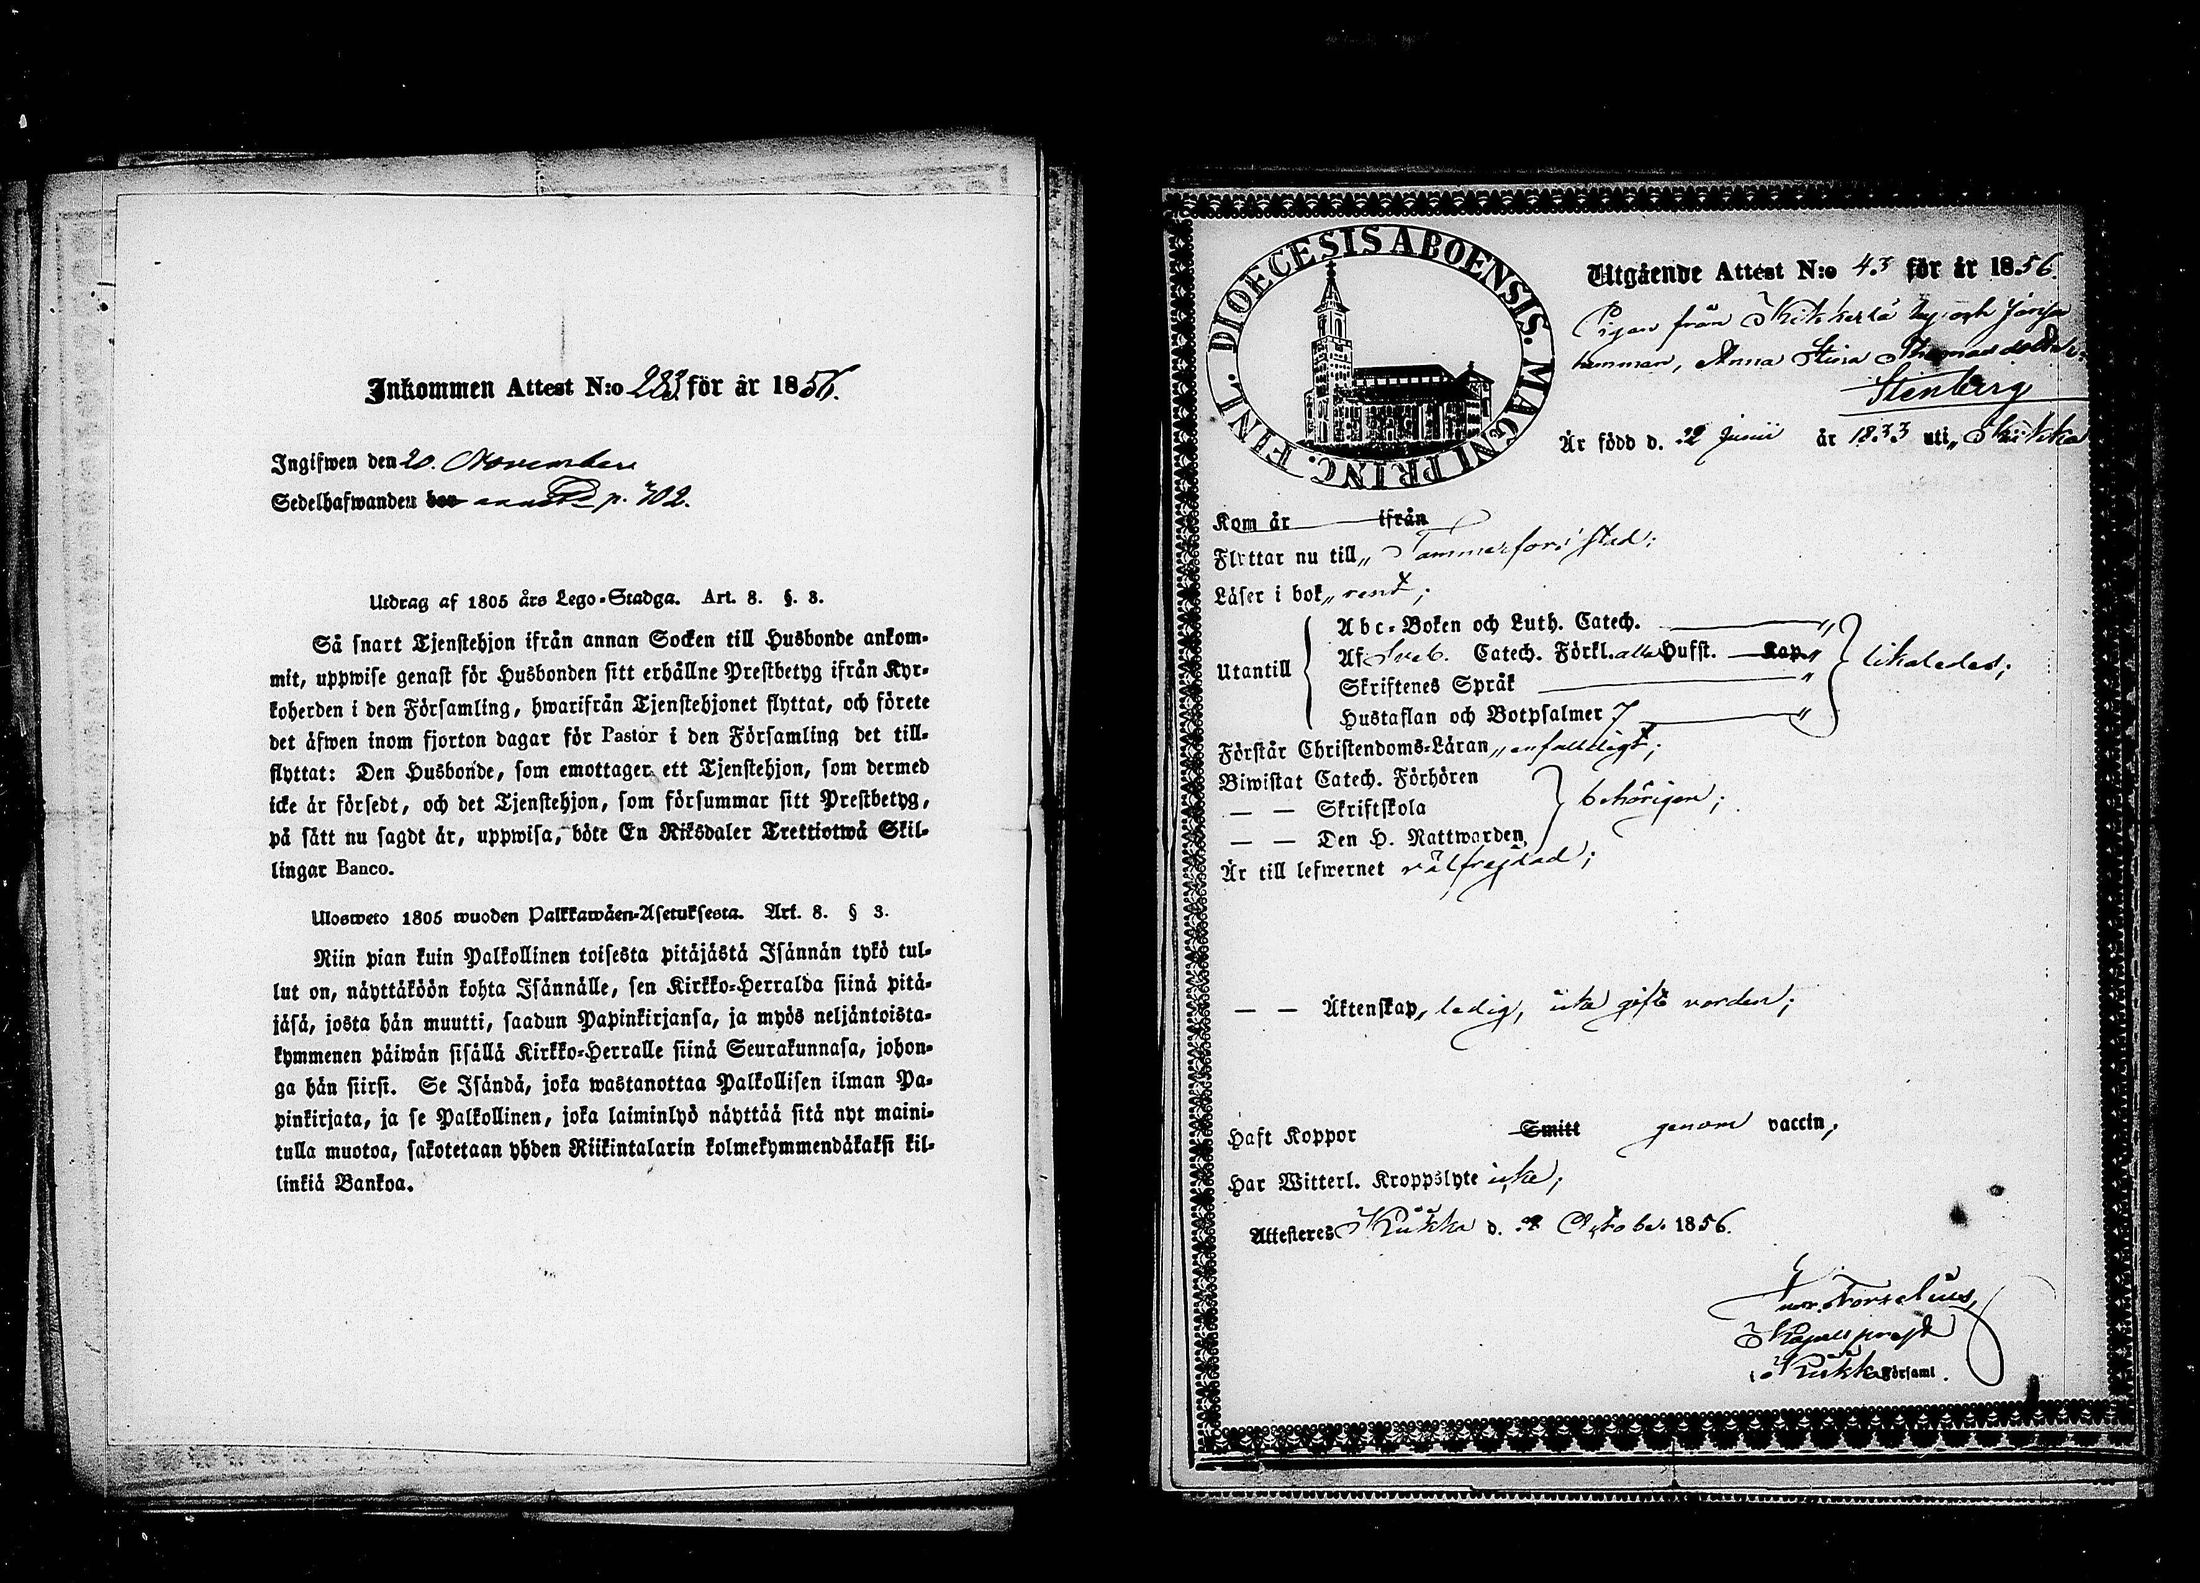 Inkommen Attest N:o 283 för år 1856.
Ingifwen den 20. November
Sedelhafwanden p. 402.
Utdrag af 1805 års Lego-Stadga. Art. 8. §. 3.
Så snart Tjenstehjon ifrån annan Socken till Husbonde ankom-
mit, uppwise genast för Husbonden sitt erhållne Prestbetyg ifrån Kyr-
koherden i den Församling, hwarifrån Tjenstehjonet flyttat, och förete
det äfwen inom fjorton dagar för Pastor i den Församling det till-
flyttat: Den Husbonde, som emottager ett Tjenstehjon, som dermed
icke är försedt, och det Tjenstehjon, som försummar sitt Prestbetyg,
på sätt nu sagdt är, uppwisa, böte En Riksdaler Trettiotwå Skil-
lingar Banco.
Ulosweto 1805 wuoden Palkkawäen-Asetuksesta. Art. 8. § 3.
Niin pian kuin Palkollinen toisesta pitäjästä Isännän tykö tul-
lut on, näyttäköön kohta Isännälle, sen Kirkko-Herralda siinä pitä-
jäsä, josta hän muutti, saadun Papinkirjansa, ja myös neljäntoista-
kymmenen päiwän sisällä Kirkko-Herralle siinä Seurakunnasa, johon-
ga hän siirsi. Se Isändä, joka wastanottaa Palkollisen ilman Pa-
pinkirjata, ja se Palkollinen, joka laiminlyö näyttää sitä nyt maini-
tulla muotoa, sakotetaan yhden Riikintalarin kolmekymmendäkaksi kil-
linkiä Bankoa.
DIOECESIS ABOENSIS. MAGNI PRINC. FINL.
Utgående Attest N:o 43 för år 1856.
Pigan från by och
hemman, Anna Stina
Stenberg
Är född d. 2 Junii år 1833 uti Kiikka
Kom år ifrån
Flyttar nu till Tammerfors stad;
Läser i bok rent;
Utantill
Abc-Boken och Luth. Catech.
Af Sveb. Catech. Förkl. alla Hufst. Kap.
Skriftenes Språk
Hustaflan och Botpsalmer 7
likaledes;
Förstår Christendoms-Läran enfaldigt;
Biwistat Catech. Förhören
— — Skriftskola
— — Den H. Nattwarden
behörigen;
Är till lefwernet välfrejdad;
— — Äktenskap, ledig, icke gift vorden;
Haft Koppor Smitt genom vaccin,
Har Witterl. Kroppslyte icke;
Attesteres Kiikka d. 2 October 1856.
Forselius,
Kapellsprest
i Kiikka Församl.